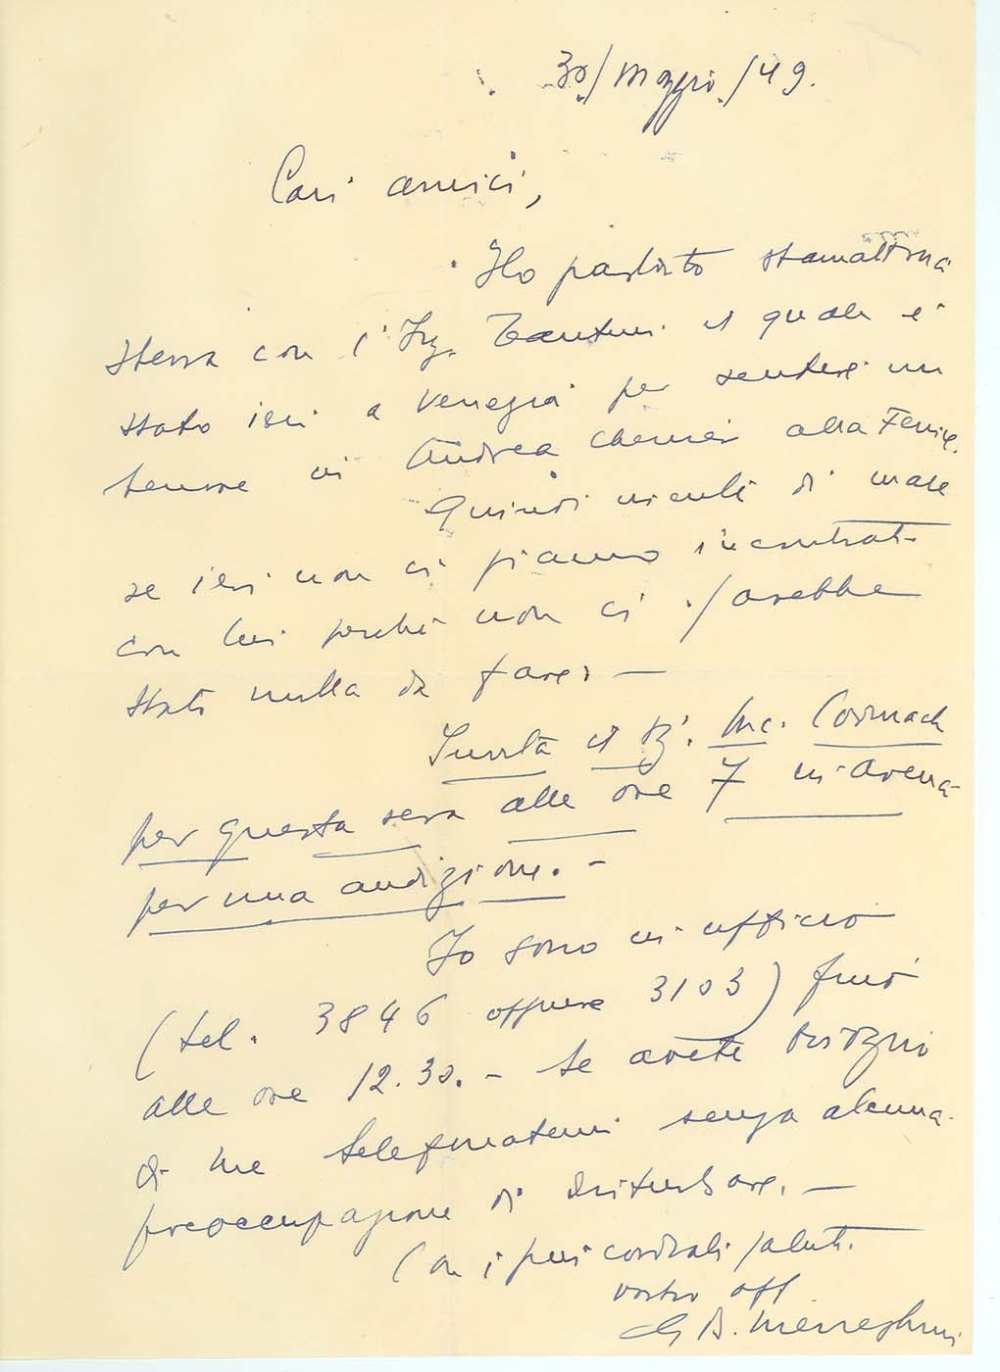 30/Maggio/49.
Cari amici,
Ho parlato stamattina
stessa con l'Ing. il quale è
stato ieri a Venezia per sentire un
tenore in Andrea Chenier alla Fenice.
Quindi niente di male
se ieri non ci siamo incontrati
con lui perché non ci sarebbe
stato nulla da fare. —
Invita il Sig. Mc. Cormack
per questa sera alle ore 7 in Arena
per una audizione. -
Io sono in ufficio
(tel. 3846 oppure 3103) fino
alle ore 12.30. - Se avete bisogno
di me telefonatemi senza alcuna
preoccupazione di disturbare. —
Con i più cordiali saluti.
vostro aff
G B. Meneghini